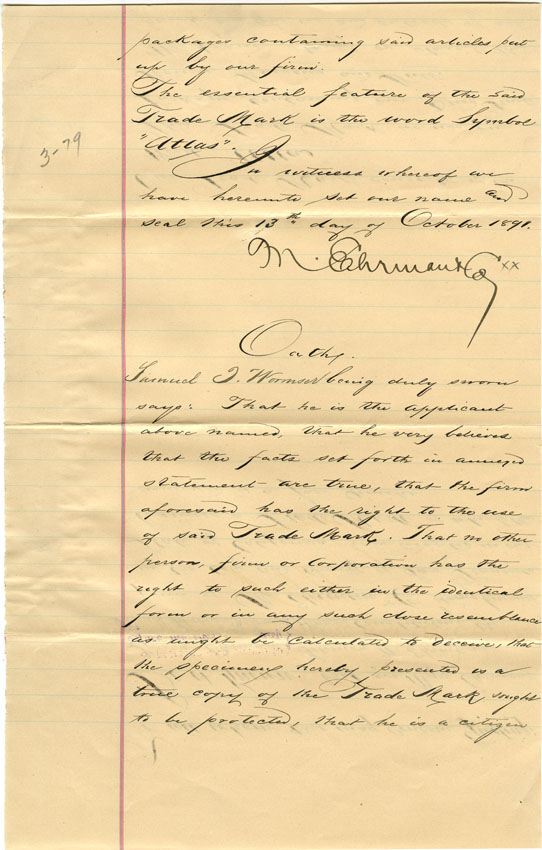 packages containing said articles put
up by our firm.
The essential feature of the said
Trade Mark is the word Symbol
"Atlas".
3-79
In witness whereof we
have hereunto set our name and
seal this 13th day of October 1891.
M. Ehrman & Co xx
Oath.
Samuel I. Wormser being duly sworn
says: That he is the applicant
above named, that he very believes
that the facts set forth in annexed
statement are true, that the firm
aforesaid has the right to the use
of said Trade Mark. That no other
person, firm or Corporation has the
right to such either in the identical
form or in any such close resemblence
as might be calculated to deceive, that
the specimens hereby presented is a
true copy of the Trade Mark, sought
to be protected, that he is a citizen